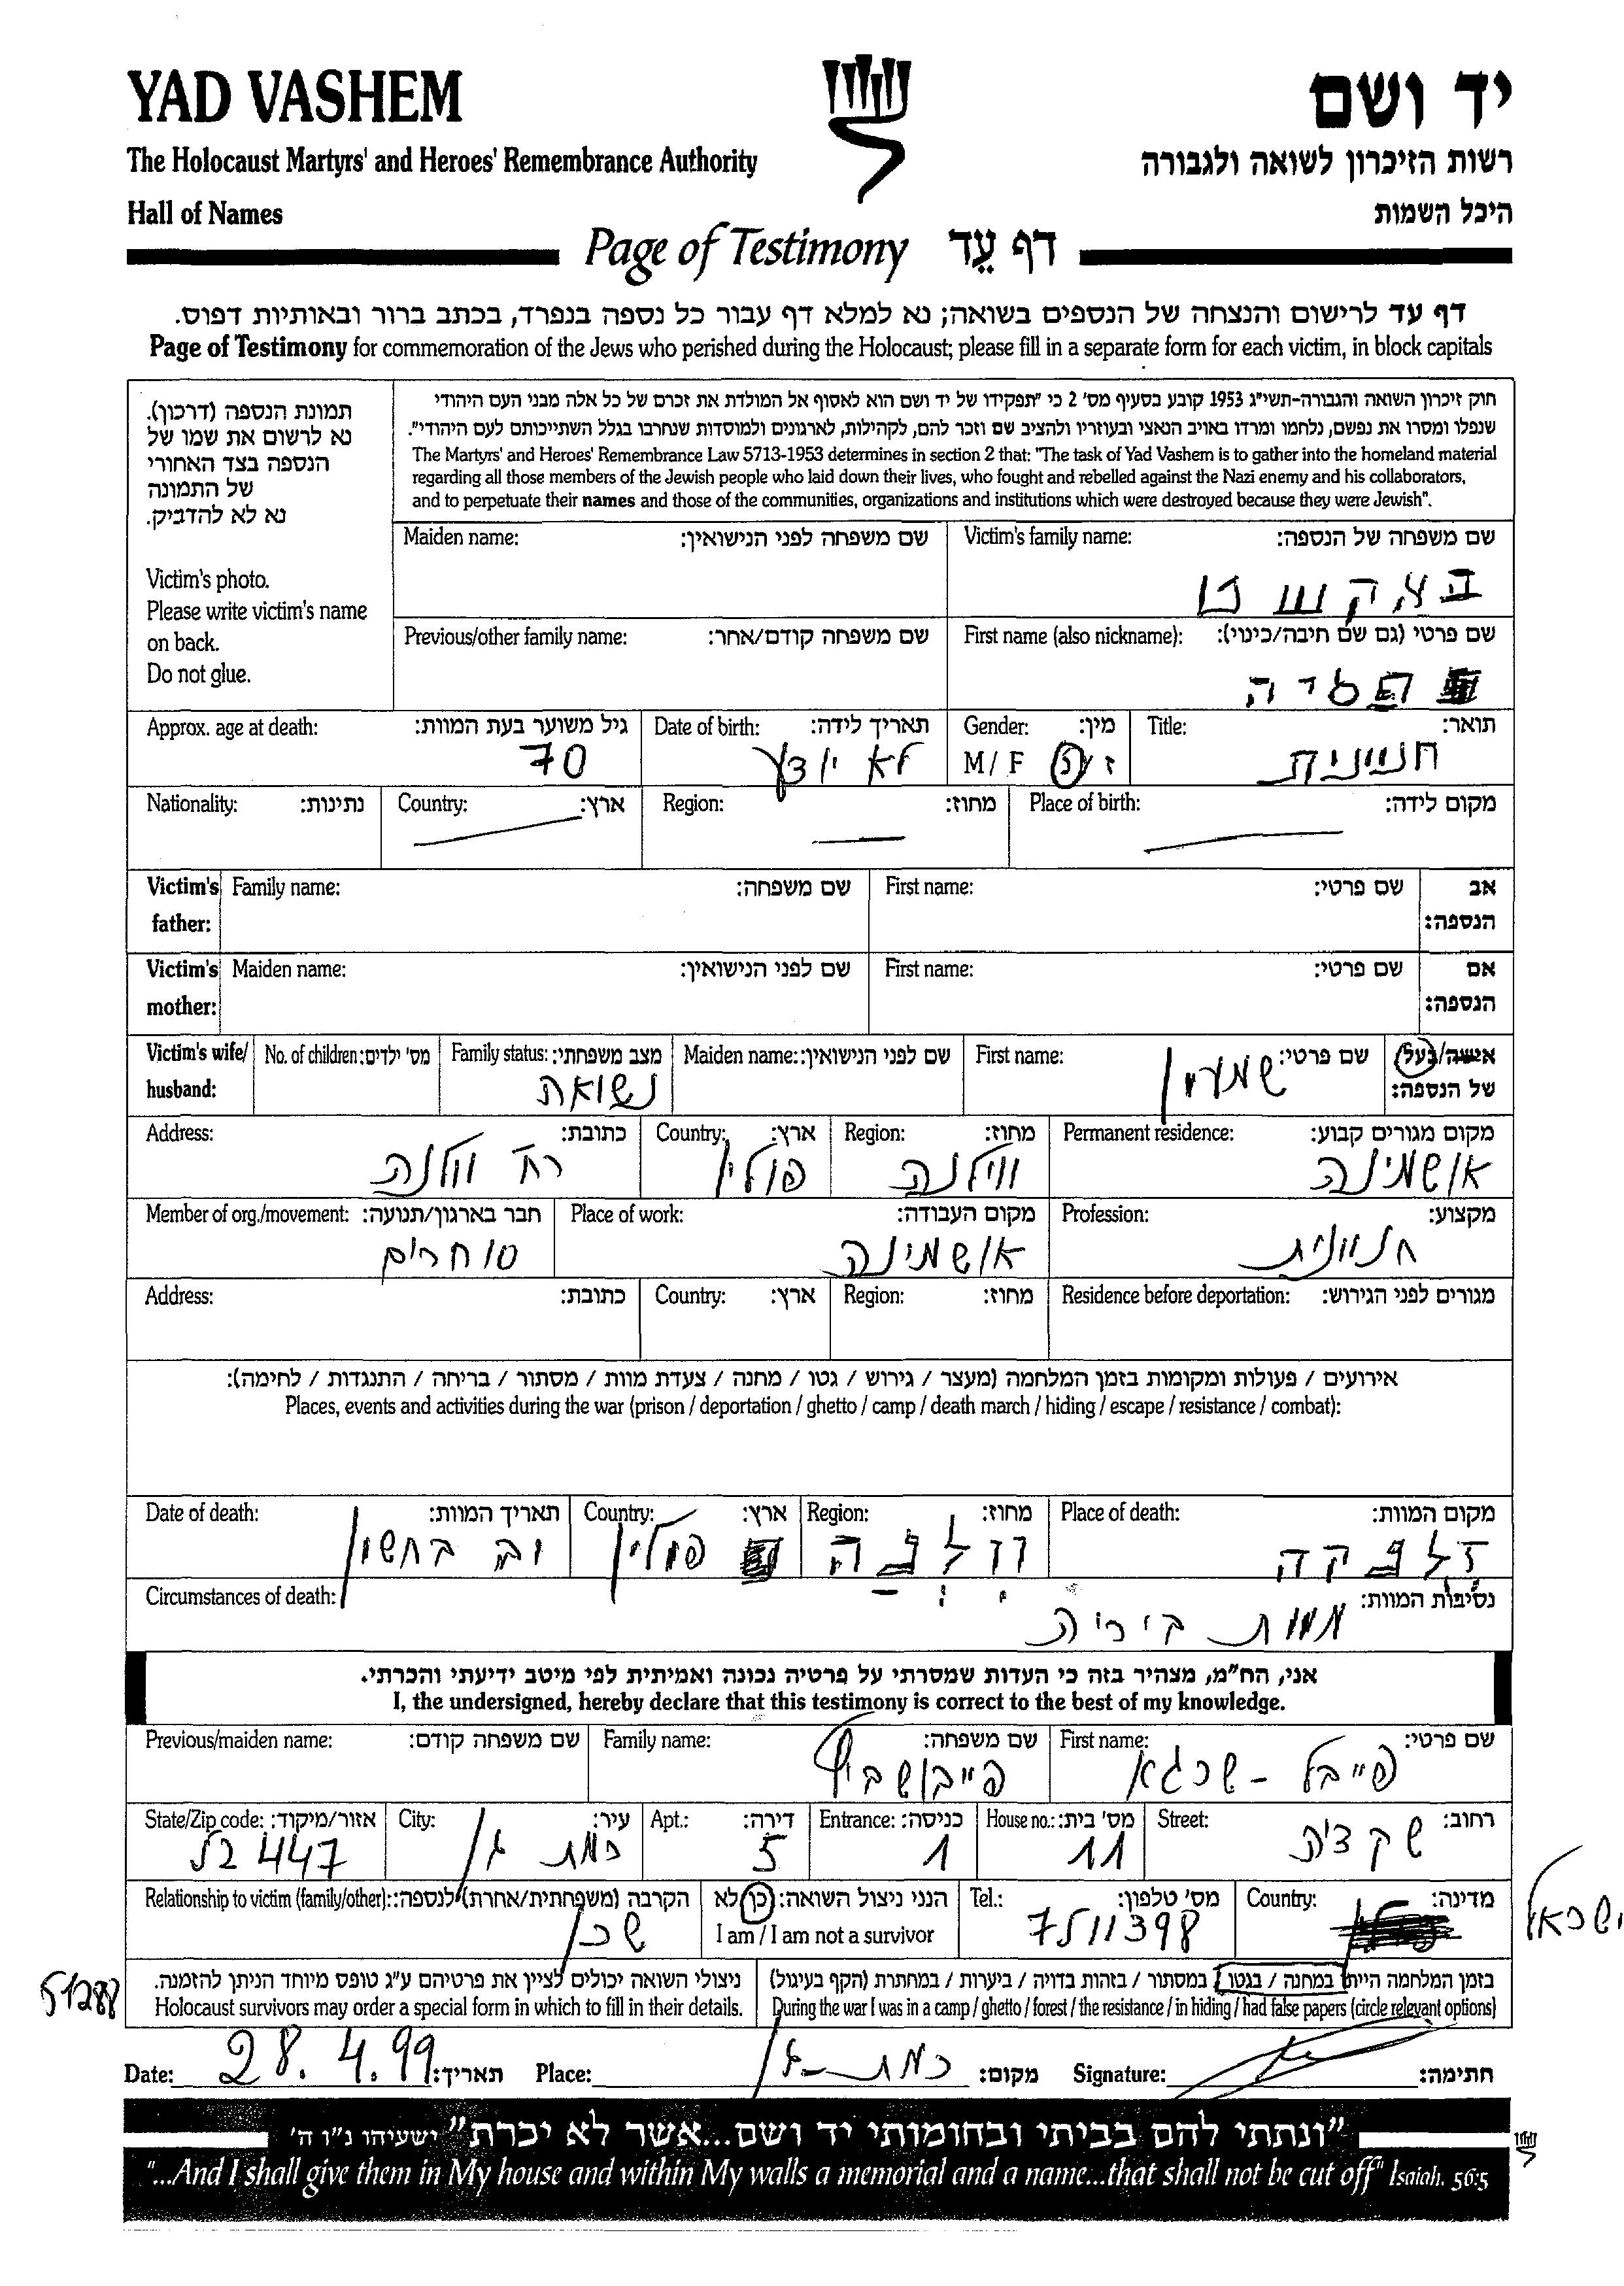 YAD VASHEM
יד ושם
The Holocaust Martyrs' and Heroes' Remembrance Authority
רשות הזיכרון לשואה ולגבורה
Hall of Names
היכל השמות
Page of Testimony דף עֵד
דף עד לרישום והנצחה של הנספים בשואה; נא למלא דף עבור כל נספה בנפרד, בכתב ברור ובאותיות דפוס.
Page of Testimony for commemoration of the Jews who perished during the Holocaust; please fill in a separate form for each victim, in block capitals
תמונת הנספה (דרכון).
נא לרשום את שמו של
הנספה בצד האחורי
של התמונה
נא לא להדביק.
Victim's photo.
Please write victim's name
on back.
Do not glue.
חוק זיכרון השואה והגבורה-תשי"ג 1953 קובע בסעיף מס' 2 כי "תפקידו של יד ושם הוא לאסוף אל המולדת את זכרם של כל אלה מבני העם היהודי
שנפלו ומסרו את נפשם, נלחמו ומרדו באויב הנאצי ובעוזריו ולהציב שם וזכר להם, לקהילות, לארגונים ולמוסדות שנחרבו בגלל השתייכותם לעם היהודי".
The Martyrs' and Heroes' Remembrance Law 5713-1953 determines in section 2 that: "The task of Yad Vashem is to gather into the homeland material
regarding all those members of the Jewish people who laid down their lives, who fought and rebelled against the Nazi enemy and his collaborators,
and to perpetuate their names and those of the communities, organizations and institutions which were destroyed because they were Jewish".
Victim's family name: שם משפחה של הנספה:
Maiden name: שם משפחה לפני הנישואין:
First name (also nickname): שם פרטי (גם שם חיבה/כינוי):
Previous/other family name: שם משפחה קודם/אחר:
Title: תואר:
חנוונית
Gender: מין:
M / F ז / נ
Date of birth: תאריך לידה:
לא ידוע
Approx. age at death: גיל משוער בעת המוות:
70
Place of birth: מקום לידה:
Region: מחוז:
Country: ארץ:
Nationality: נתינות:
Victim's father: אב הנספה:
First name: שם פרטי:
Family name: שם משפחה:
Victim's mother: אם הנספה:
First name: שם פרטי:
Maiden name: שם לפני הנישואין:
Victim's wife/ husband: אישה/בעל של הנספה:
First name: שם פרטי:
שמעון
Maiden name: שם לפני הנישואין:
Family status: מצב משפחתי:
נשואה
No. of children: מס' ילדים:
Permanent residence: מקום מגורים קבוע:
אושמינה
Region: מחוז:
ווילנה
Country: ארץ:
פולין
Address: כתובת:
רח' ווילנה
Profession: מקצוע:
חנוונית
Place of work: מקום העבודה:
אושמינה
Member of org./movement: חבר בארגון/תנועה:
סוחרים
Residence before deportation: מגורים לפני הגירוש:
Region: מחוז:
Country: ארץ:
Address: כתובת:
אירועים / פעולות ומקומות בזמן המלחמה (מעצר / גירוש / גטו / מחנה / צעדת מוות / מסתור / בריחה / התנגדות / לחימה):
Places, events and activities during the war (prison / deportation / ghetto / camp / death march / hiding / escape / resistance / combat):
Place of death: מקום המוות:
Region: מחוז:
וילנה
Country: ארץ:
פולין
Date of death: תאריך המוות:
בחשון
Circumstances of death: נסיבות המוות:
מוות ביריה
אני, הח"מ, מצהיר בזה כי העדות שמסרתי על פרטיה נכונה ואמיתית לפי מיטב ידיעתי והכרתי.
I, the undersigned, hereby declare that this testimony is correct to the best of my knowledge.
First name: שם פרטי:
פייבל - שרגא
Family name: שם משפחה:
פייבושביץ
Previous/maiden name: שם משפחה קודם:
Street: רחוב:
שקדית
House no.: מס' בית:
11
Entrance: כניסה:
1
Apt.: דירה:
5
City: עיר:
רמת גן
State/Zip code: אזור/מיקוד:
52447
Country: מדינה:
ישראל
Tel.: מס' טלפון:
7511398
הנני ניצול השואה: כן לא
I am / I am not a survivor
Relationship to victim (family/other): הקרבה (משפחתית/אחרת) לנספה:
שכן
בזמן המלחמה הייתי במחנה / בגטו / במסתור / בזהות בדויה / ביערות / במחתרת (הקף בעיגול)
During the war I was in a camp / ghetto / forest / the resistance / in hiding / had false papers (circle relevant options)
ניצולי השואה יכולים לציין את פרטיהם ע"ג טופס מיוחד הניתן להזמנה.
Holocaust survivors may order a special form in which to fill in their details.
51288
Date: 28.4.99 תאריך:
Place: רמת-גן מקום:
Signature: חתימה:
"ונתתי להם בביתי ובחומותי יד ושם...אשר לא יכרת" ישעיהו נ"ו ה'
"...And I shall give them in My house and within My walls a memorial and a name...that shall not be cut off" Isaiah. 56:5